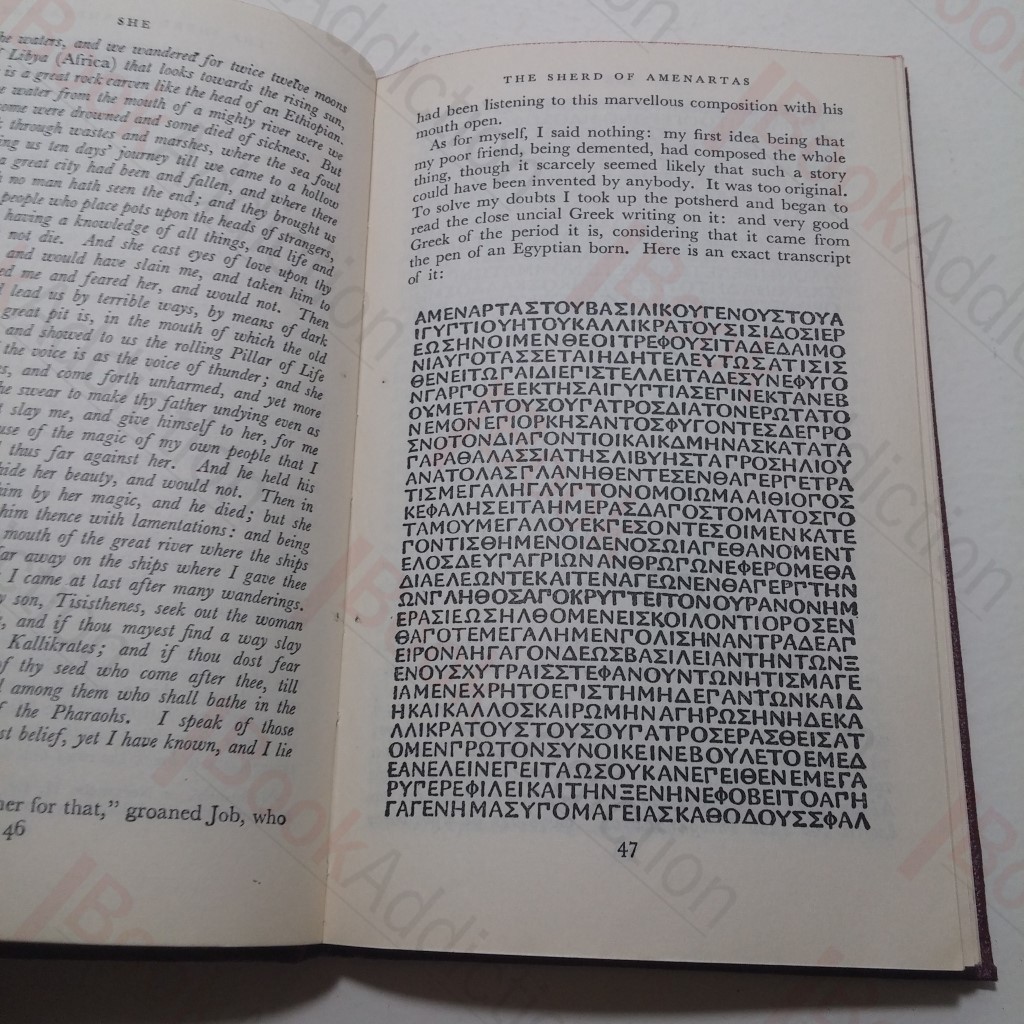 SHE
he waters, and we wandered for twice twelve moons
Libya (Africa) that looks towards the rising sun,
is a great rock carven like the head of an Ethiopian.
e water from the mouth of a mighty river were we
ome were drowned and some died of sickness. But
through wastes and marshes, where the sea fowl
ng us ten days' journey till we came to a hollow
a great city had been and fallen, and where there
h no man hath seen the end; and they brought us
people who place pots upon the heads of strangers,
having a knowledge of all things, and life and
not die. And she cast eyes of love upon thy
and would have slain me, and taken him to
ed me and feared her, and would not. Then
d lead us by terrible ways, by means of dark
great pit is, in the mouth of which the old
and showed to us the rolling Pillar of Life
the voice is as the voice of thunder; and she
s, and come forth unharmed, and yet more
he swear to make thy father undying even as
t slay me, and give himself to her, for me
use of the magic of my own people that I
thus far against her. And he held his
hide her beauty, and would not. Then in
him by her magic, and he died; but she
him thence with lamentations: and being
mouth of the great river where the ships
far away on the ships where I gave thee
I came at last after many wanderings.
y son, Tisisthenes, seek out the woman
, and if thou mayest find a way slay
Kallikrates; and if thou dost fear
f thy seed who come after thee, till
d among them who shall bathe in the
f the Pharaohs. I speak of those
st belief, yet I have known, and I lie
her for that," groaned Job, who
46
THE SHERD OF AMENARTAS
had been listening to this marvellous composition with his
mouth open.
As for myself, I said nothing: my first idea being that
my poor friend, being demented, had composed the whole
thing, though it scarcely seemed likely that such a story
could have been invented by anybody. It was too original.
To solve my doubts I took up the potsherd and began to
read the close uncial Greek writing on it: and very good
Greek of the period it is, considering that it came from
the pen of an Egyptian born. Here is an exact transcript
of it:
ΑΜΕΝΑΡΤΑΣΤΟΥΒΑΣΙΛΙΚΟΥΓΕΝΟΥΣΤΟΥΑ
ΙΓΥΠΤΙΟΥΗΤΟΥΚΑΛΛΙΚΡΑΤΟΥΣΙΣΙΔΟΣΙΕΡ
ΕΩΣΗΝΟΙΜΕΝΘΕΟΙΤΡΕΦΟΥΣΙΤΑΔΕΔΑΙΜΟ
ΝΙΑΥΠΟΤΑΣΣΕΤΑΙΗΔΗΤΕΛΕΥΤΩΣΑΤΙΣΙΣ
ΘΕΝΕΙΤΩΠΑΙΔΙΕΠΙΣΤΕΛΛΕΙΤΑΔΕΣΥΝΕΦΥΓΟ
ΝΓΑΡΠΟΤΕΕΚΤΗΣΑΙΓΥΠΤΙΑΣΕΠΙΝΕΚΤΑΝΕΒ
ΟΥΜΕΤΑΤΟΥΣΟΥΠΑΤΡΟΣΔΙΑΤΟΝΕΡΩΤΑΤΟ
ΝΕΜΟΝΕΠΙΟΡΚΗΣΑΝΤΟΣΦΥΓΟΝΤΕΣΔΕΠΡΟ
ΣΝΟΤΟΝΔΙΑΠΟΝΤΙΟΙΚΑΙΚΔΜΗΝΑΣΚΑΤΑΤΑ
ΠΑΡΑΘΑΛΑΣΣΙΑΤΗΣΛΙΒΥΗΣΤΑΠΡΟΣΗΛΙΟΥ
ΑΝΑΤΟΛΑΣΠΛΑΝΗΘΕΝΤΕΣΕΝΘΑΠΕΡΠΕΤΡΑ
ΤΙΣΜΕΓΑΛΗΓΛΥΠΤΟΝΟΜΟΙΩΜΑΑΙΘΙΟΠΟΣ
ΚΕΦΑΛΗΣΕΙΤΑΗΜΕΡΑΣΔΑΠΟΣΤΟΜΑΤΟΣΠΟ
ΤΑΜΟΥΜΕΓΑΛΟΥΕΚΠΕΣΟΝΤΕΣΟΙΜΕΝΚΑΤΕ
ΠΟΝΤΙΣΘΗΜΕΝΟΙΔΕΝΟΣΩΙΑΠΕΘΑΝΟΜΕΝΤ
ΕΛΟΣΔΕΥΠΑΓΡΙΩΝΑΝΘΡΩΠΩΝΕΦΕΡΟΜΕΘΑ
ΔΙΑΕΛΕΩΝΤΕΚΑΙΤΕΝΑΓΕΩΝΕΝΘΑΠΕΡΠΤΗΝ
ΩΝΠΛΗΘΟΣΑΠΟΚΡΥΠΤΕΙΤΟΝΟΥΡΑΝΟΝΗΜ
ΕΡΑΣΙΕΩΣΗΛΘΟΜΕΝΕΙΣΚΟΙΛΟΝΤΙΟΡΟΣΕΝ
ΘΑΠΟΤΕΜΕΓΑΛΗΜΕΝΠΟΛΙΣΗΝΑΝΤΡΑΔΕΑΠ
ΕΙΡΟΝΑΗΓΑΓΟΝΔΕΩΣΒΑΣΙΛΕΙΑΝΤΗΝΤΩΝΞ
ΕΝΟΥΣΧΥΤΡΑΙΣΣΤΕΦΑΝΟΥΝΤΩΝΗΤΙΣΜΑΓΕ
ΙΑΜΕΝΕΧΡΗΤΟΕΠΙΣΤΗΜΗΔΕΠΑΝΤΩΝΚΑΙΔ
ΗΚΑΙΚΑΛΛΟΣΚΑΙΡΩΜΗΝΑΓΗΡΩΣΗΝΗΔΕΚΑ
ΛΛΙΚΡΑΤΟΥΣΤΟΥΣΟΥΠΑΤΡΟΣΕΡΑΣΘΕΙΣΑΤ
ΟΜΕΝΠΡΩΤΟΝΣΥΝΟΙΚΕΙΝΕΒΟΥΛΕΤΟΕΜΕΔ
ΕΑΝΕΛΕΙΝΕΠΕΙΤΑΩΣΟΥΚΑΝΕΠΕΙΘΕΝΕΜΕΓΑ
ΡΥΠΕΡΕΦΙΛΕΙΚΑΙΤΗΝΞΕΝΗΝΕΦΟΒΕΙΤΟΑΠΗ
ΓΑΓΕΝΗΜΑΣΥΠΟΜΑΓΕΙΑΣΚΑΘΟΔΟΥΣΣΦΑΛ
47